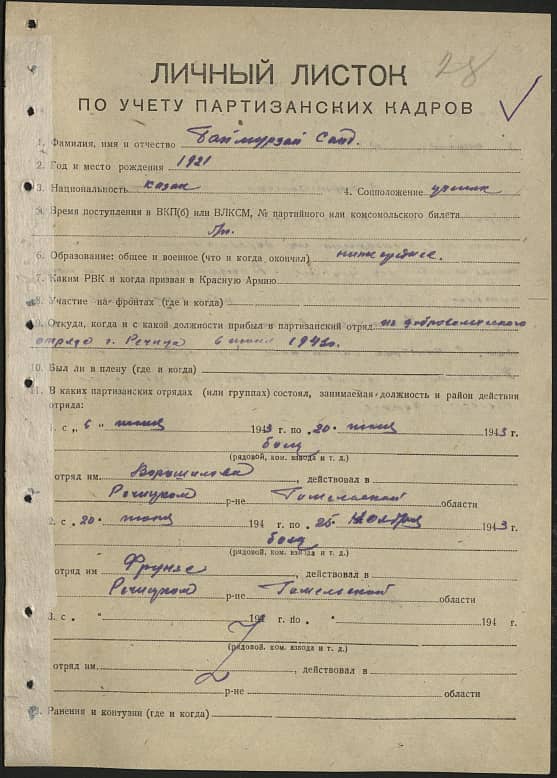 28
ЛИЧНЫЙ ЛИСТОК
ПО УЧЕТУ ПАРТИЗАНСКИХ КАДРОВ
1. Фамилия, имя и отчество Баймурзай Саид.
2. Год и место рождения 1921
3. Национальность казак 4. Соцположение ученик
5. Время поступления в ВКП(б) или ВЛКСМ, № партийного или комсомольского билета
б/п.
6. Образование: общее и военное (что и когда окончил) ниже среднее.
7. Каким РВК и когда призван в Красную Армию
8. Участие на фронтах (где и когда)
9. Откуда, когда и с какой должности прибыл в партизанский отряд из добровольческого
отряда г. Речица 6 июня 1943г.
10. Был ли в плену (где и когда)
11. В каких партизанских отрядах (или группах) состоял, занимаемая должность и район действия
отряда:
1. с „ 6 " июня 1943 г. по „20" июня 1943 г.
боец
(рядовой, ком. взвода и т. д.)
отряд им. Ворошилова, действовал в
Речицком р-не Гомельской области
2. с „20" июня 194 г. по „25" ноября 1943 г.
боец
(рядовой, ком. взвода и т. д.)
отряд им Фрунзе, действовал в
Речицком р-не Гомельской области
3. с „ " 194 г. по „ " 194 г.
(рядовой, ком. взвода и т. д.)
отряд им. , действовал в
р-не области
Ранения и контузии (где и когда)